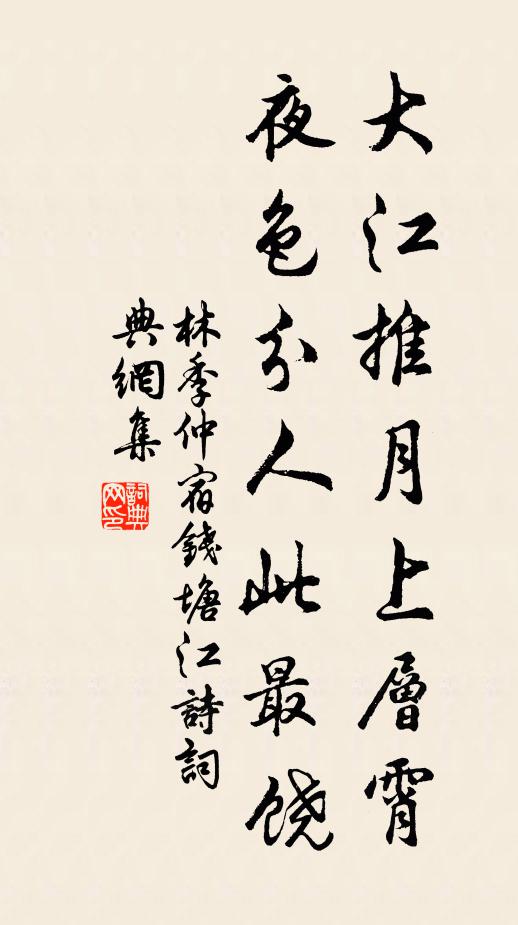 大江推月上層霄
夜色分人此最饶
林季仲宿錢塘江詩詞
典網集
詞典
网印